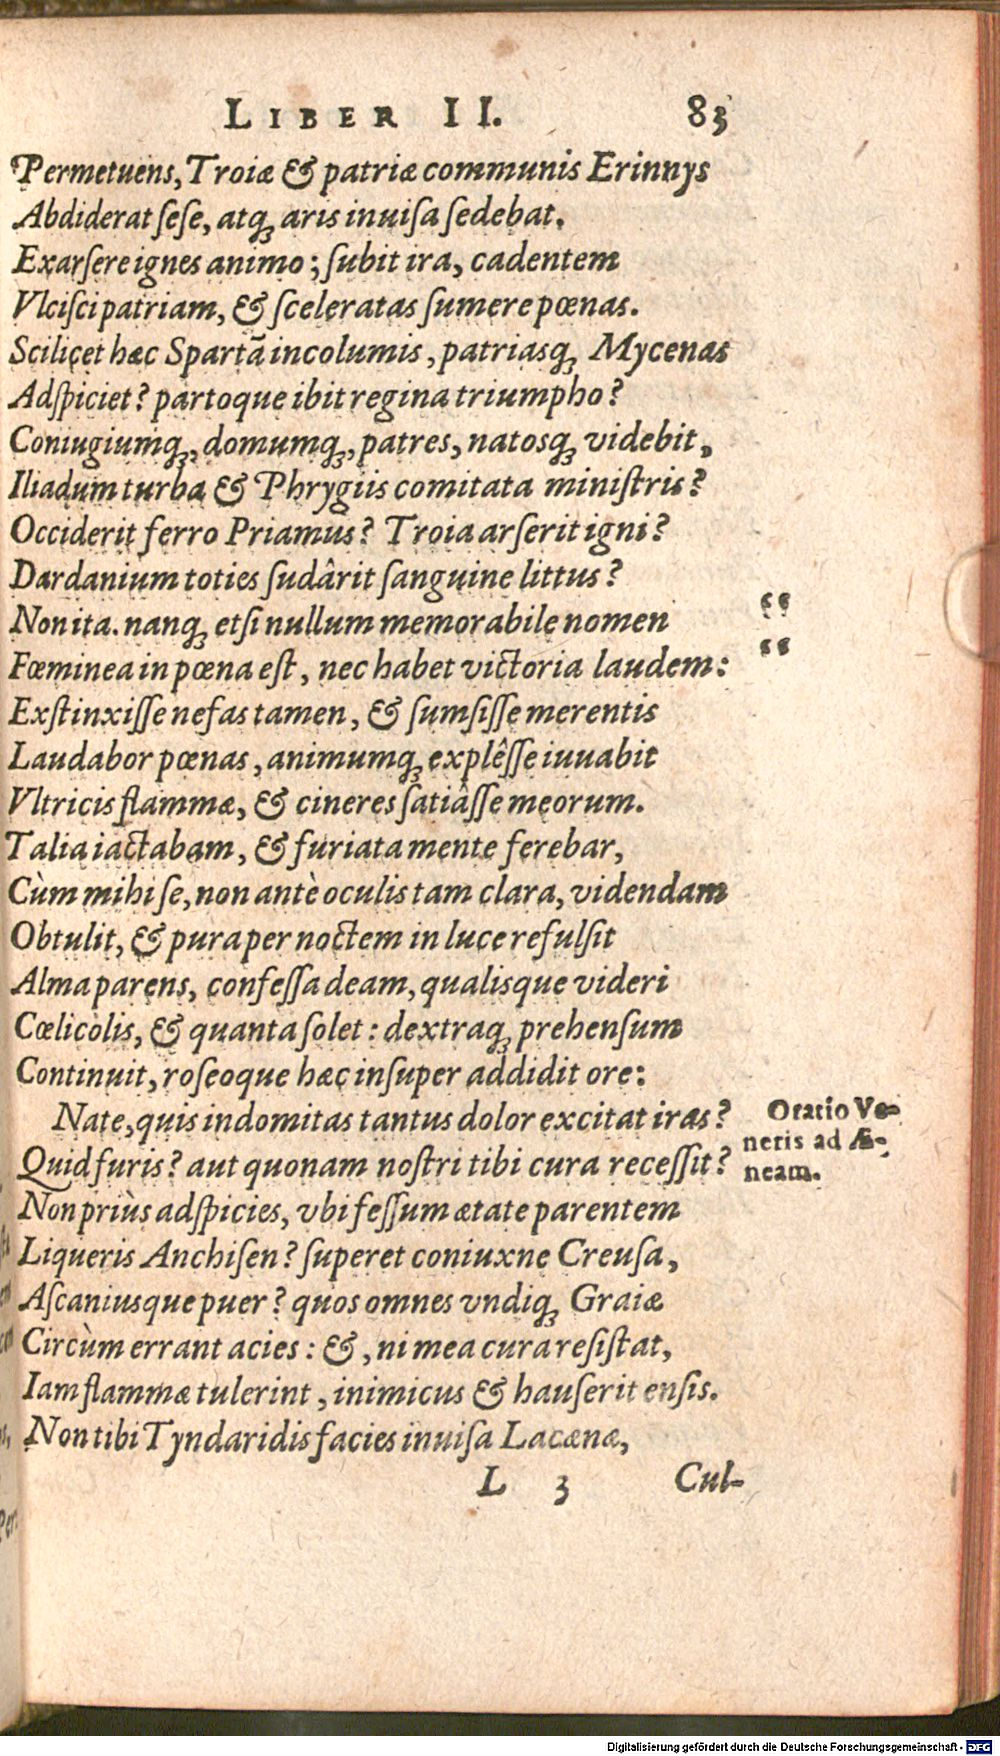 LIBER II. 83
Permetuens, Troiæ & patriæ communis Erinnys
Abdiderat ſeſe, atqꝫ aris inuiſa ſedebat.
Exarſere ignes animo; ſubit ira, cadentem
Vlciſci patriam, & ſceleratas ſumere pœnas.
Scilicet hæc Spartā incolumis, patriasqꝫ Mycenas
Adſpiciet? partoque ibit regina triumpho?
Coniugiumqꝫ, domumqꝫ, patres, natosqꝫ videbit,
Iliadum turba & Phrygiis comitata miniſtris?
Occiderit ferro Priamus? Troia arſerit igni?
Dardanium toties ſudârit ſanguine littus?
Non ita. nanqꝫ etſi nullum memorabile nomen “
Fœminea in pœna eſt, nec habet victoria laudem: “
Exſtinxiſſe nefas tamen, & ſumſiſſe merentis
Laudabor pœnas, animumqꝫ explêſſe iuuabit
Vltricis flammæ, & cineres ſatiâſſe meorum.
Talia iactabam, & furiata mente ferebar,
Cùm mihi ſe, non antè oculis tam clara, videndam
Obtulit, & pura per noctem in luce refulſit
Alma parens, confeſſa deam, qualisque videri
Cœlicolis, & quanta ſolet: dextraqꝫ prehenſum
Continuit, roſeoque hæc inſuper addidit ore:
Nate, quis indomitas tantus dolor excitat iras?
Quid furis? aut quonam noſtri tibi cura receſſit?
Non priùs adſpicies, vbi feſſum ætate parentem
Liqueris Anchiſen? ſuperet coniuxne Creuſa,
Aſcaniusque puer? quos omnes vndiqꝫ Graiæ
Circùm errant acies: &, ni mea cura reſiſtat,
Iam flammæ tulerint, inimicus & hauſerit enſis.
Non tibi Tyndaridis facies inuiſa Lacænæ,
L 3 Cul-
Oratio Ve-
neris ad Æ-
neam.
Digitalisierung gefördert durch die Deutsche Forschungsgemeinschaft - DFG